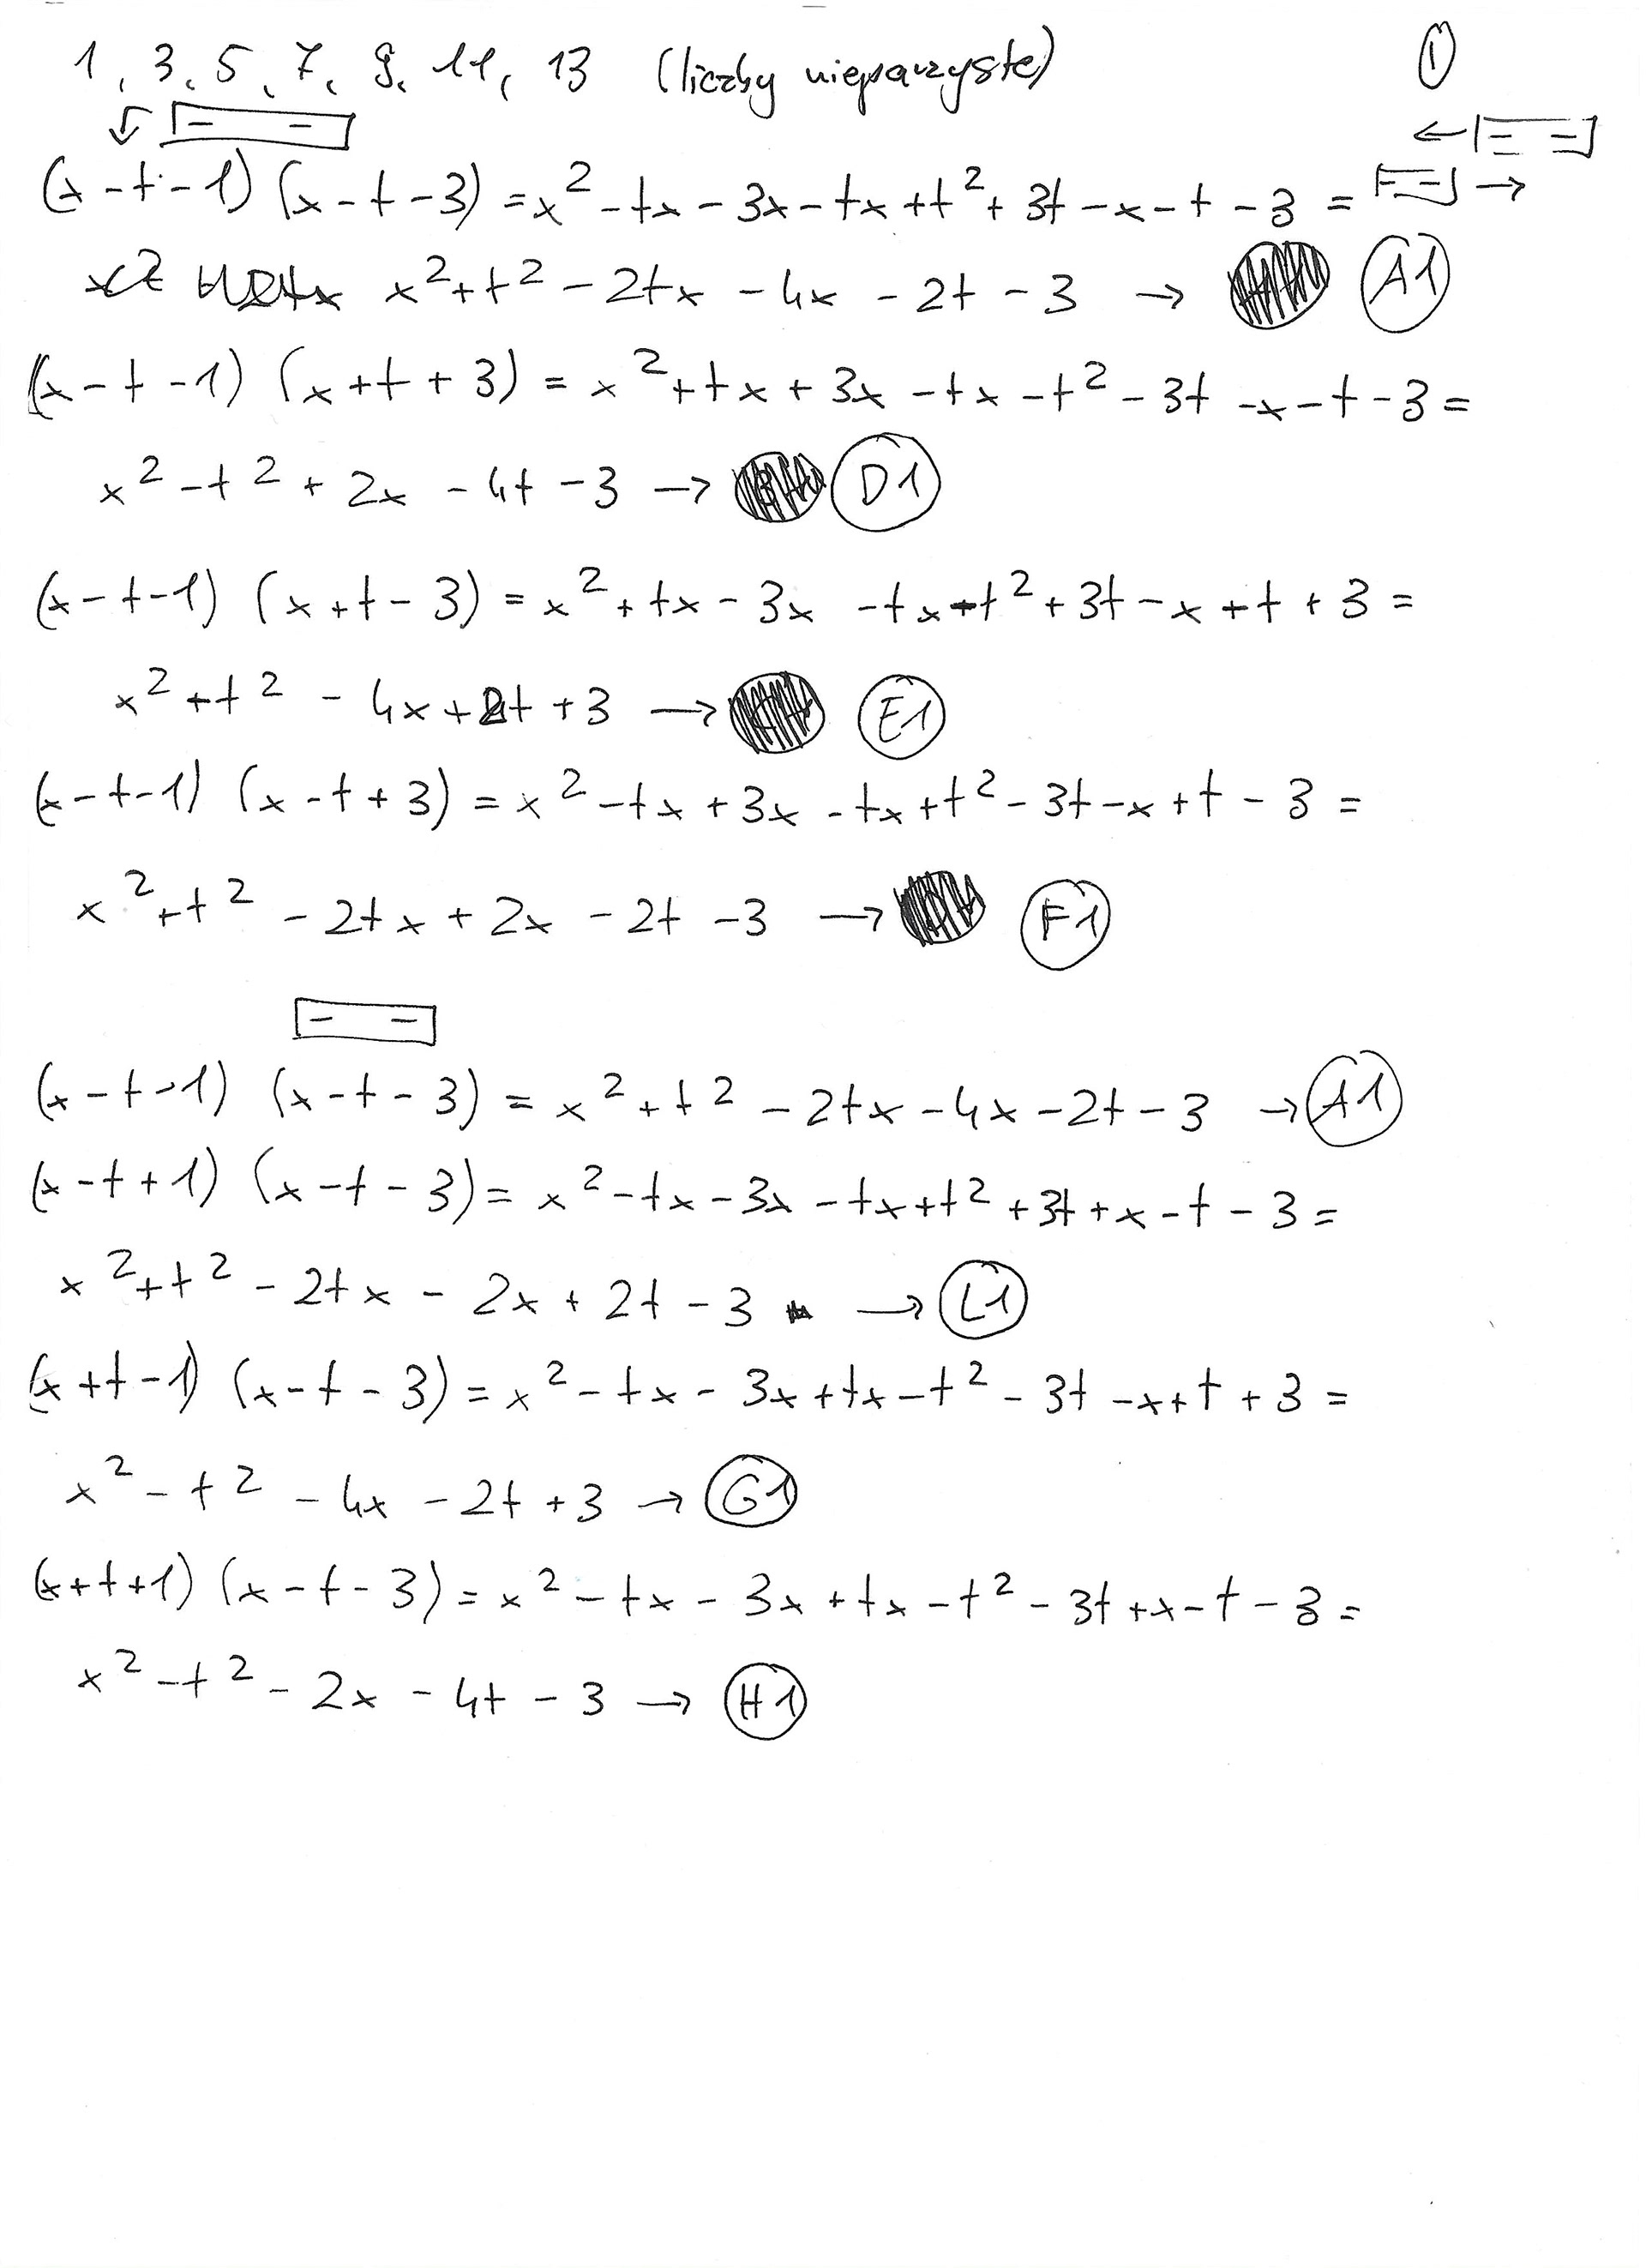 1, 3, 5, 7, 9, 11, 13 (liczby nieparzyste) 1
(x-t-1) (x-t-3) = x² - tx - 3x - tx + t² + 3t - x - t - 3 =
x² + t² - 2tx - 4x - 2t - 3 → A1
(x-t-1) (x+t+3) = x² + tx + 3x - tx - t² - 3t - x - t - 3 =
x² - t² + 2x - 4t - 3 → D1
(x-t-1) (x+t-3) = x² + tx - 3x - tx - t² + 3t - x + t + 3 =
x² + t² - 4x + 2t + 3 → E1
(x-t-1) (x-t+3) = x² - tx + 3x - tx + t² - 3t - x + t - 3 =
x² + t² - 2tx + 2x - 2t - 3 → F1
(x-t-1) (x-t-3) = x² + t² - 2tx - 4x - 2t - 3 → A1
(x-t+1) (x-t-3) = x² - tx - 3x - tx + t² + 3t + x - t - 3 =
x² + t² - 2tx - 2x + 2t - 3 → L1
(x+t-1) (x-t-3) = x² - tx - 3x + tx - t² - 3t - x + t + 3 =
x² - t² - 4x - 2t + 3 → G1
(x+t+1) (x-t-3) = x² - tx - 3x + tx - t² - 3t + x - t - 3 =
x² - t² - 2x - 4t - 3 → H1